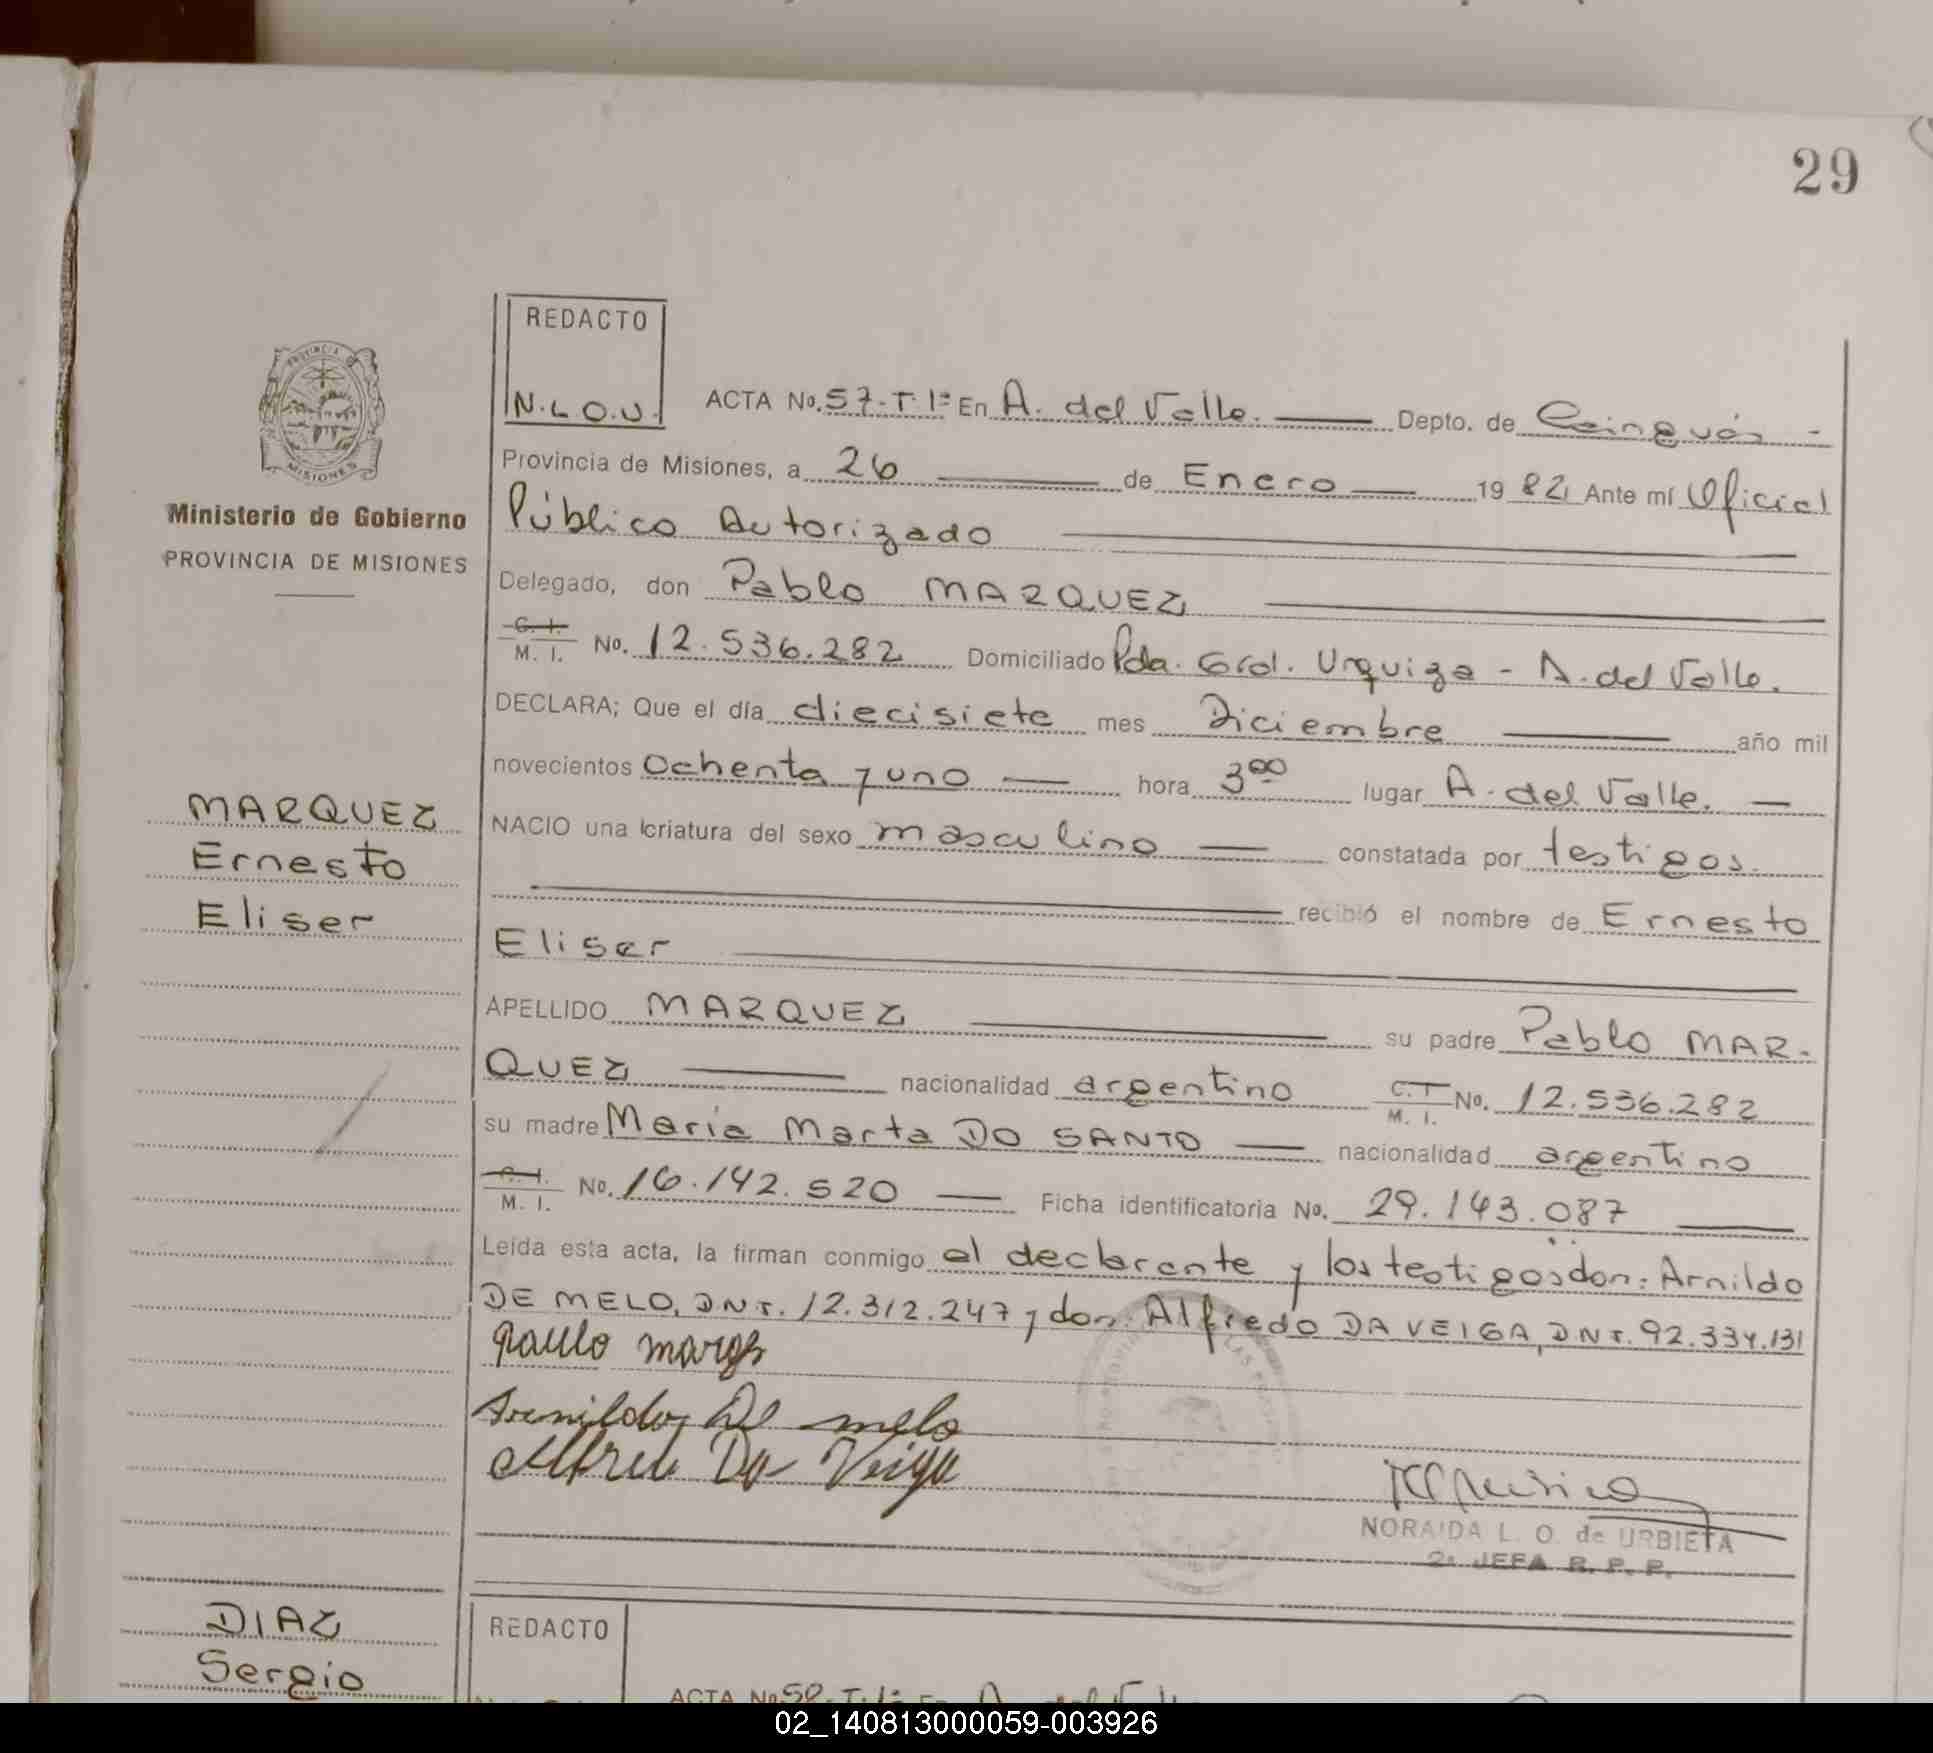 29
REDACTO
N.L.O.U.
ACTA No. 57-T.1º En A. del Valle. Depto. de Cainguás -
PROVINCIA DE MISIONES
Ministerio de Gobierno
PROVINCIA DE MISIONES
Provincia de Misiones, a 26 de Enero 1982 Ante mí Oficial
Público Autorizado
Delegado, don Pablo MARQUEZ
C. I. M. I. No. 12.536.282 Domiciliado Pda. Gral. Urquiza - A. del Valle.
DECLARA; Que el día diecisiete mes Diciembre año mil
novecientos Ochenta y uno hora 3 00 lugar A. del Valle.
MARQUEZ
Ernesto
Eliser
NACIO una criatura del sexo masculino constatada por testigos.
recibió el nombre de Ernesto
Eliser
APELLIDO MARQUEZ su padre Pablo MAR-
QUEZ nacionalidad argentino C.I. M. I. No. 12.536.282
su madre Maria Marta DO SANTO nacionalidad argentino
C. I. M. I. No. 16.142.520 Ficha identificatoria No. 29.143.087
Leída esta acta, la firman conmigo el declarante y los testigos don: Arnildo
DE MELO, DNI. 12.312.247 y don: Alfredo DA VEIGA, DNI. 92.334.131
Arnildo De melo
Alfredo Da Veiga
NORAIDA L. O. de URBIETA
2a JEFA R. P. P.
DIAZ
Sergio
REDACTO
ACTA No.
02_140813000059-003926